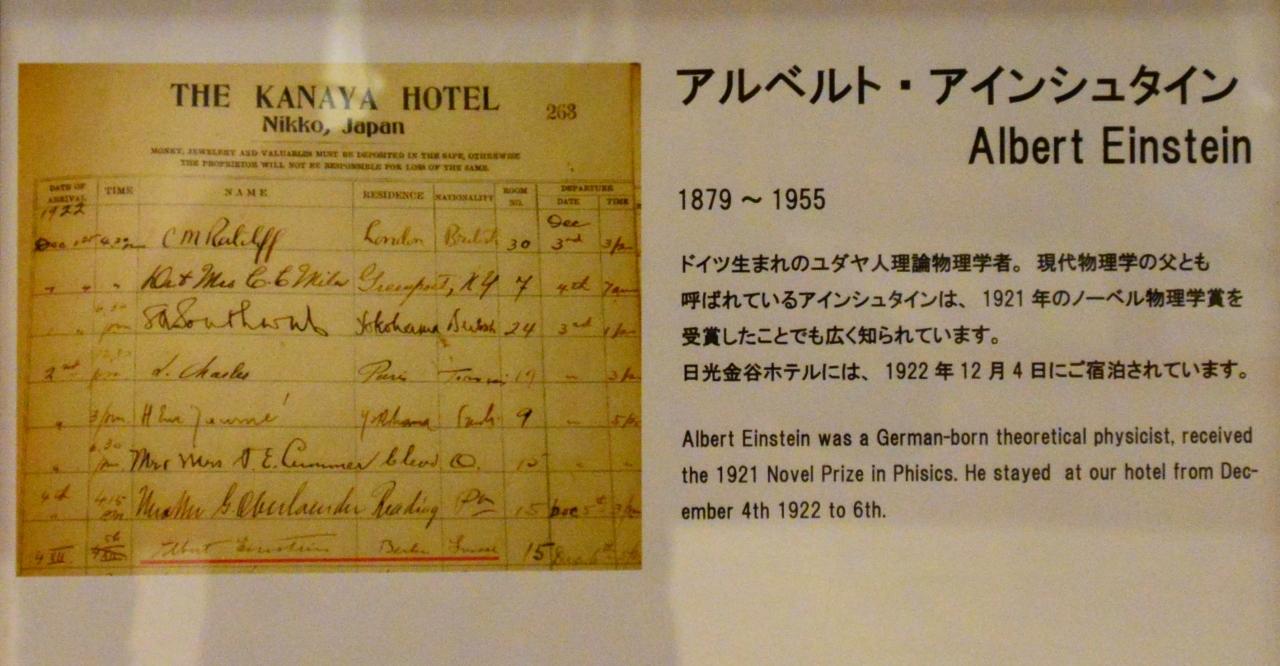 THE KANAYA HOTEL
Nikko, Japan
263
MONEY, JEWELERY AND VALUABLES MUST BE DEPOSITED IN THE SAFE, OTHERWISE
THE PROPRIETOR WILL NOT BE RESPONSIBLE FOR LOSS OF THE SAME.
DATE OF ARRIVAL TIME NAME RESIDENCE NATIONALITY ROOM NO. DEPARTURE DATE TIME
1922
Dec 1st 4.30 C M Ratcliff London British 30 Dec 3rd
" " " & Mrs C. C. Greenport, N.Y. 7 4th
Yokohama British 24 3rd
2nd L. Charles Paris 19
" 3/pm Yokohama 9
" 6.30 Mr & Mrs D. E. Cleve O.
4th 4.15 G Oberlaender Reading Pa 15 Dec 5th
4 XII Albert Einstein Berlin Suisse 15 Dec 6th
アルベルト・アインシュタイン
Albert Einstein
1879 ～ 1955
ドイツ生まれのユダヤ人理論物理学者。現代物理学の父とも
呼ばれているアインシュタインは、1921 年のノーベル物理学賞を
受賞したことでも広く知られています。
日光金谷ホテルには、1922 年 12 月 4 日にご宿泊されています。
Albert Einstein was a German-born theoretical physicist, received
the 1921 Novel Prize in Phisics. He stayed at our hotel from Dec-
ember 4th 1922 to 6th.